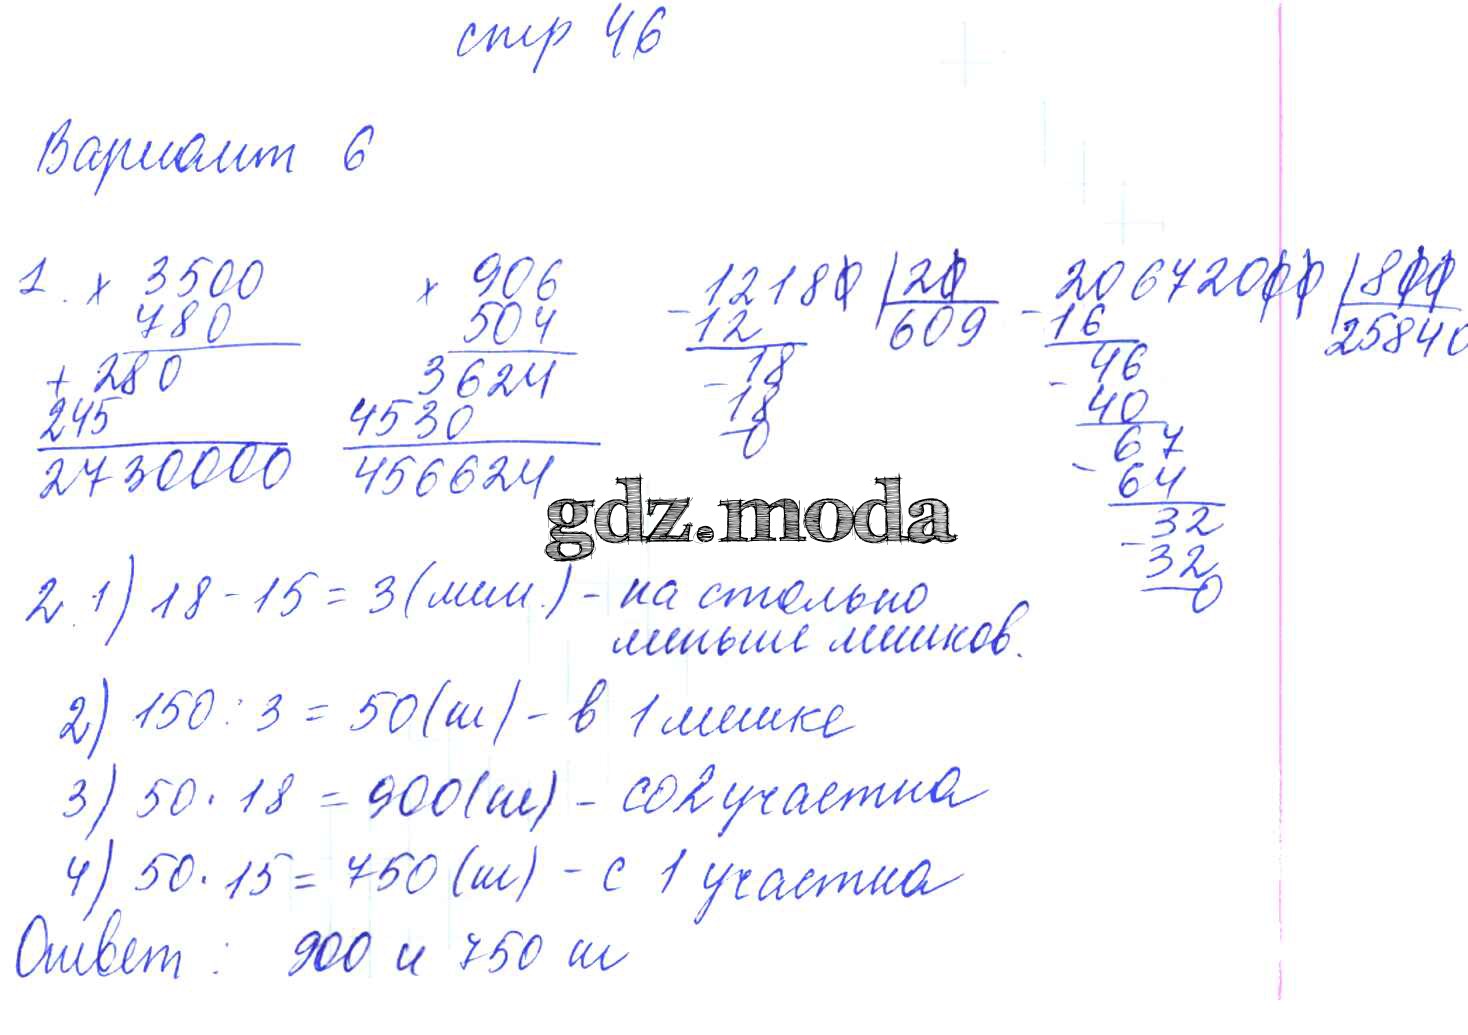 стр 46
Вариант 6
1. × 3500
780
+ 280
245
2730000
× 906
504
3624
4530
456624
- 12180 | 20
12 609
18
- 18
0
- 20672000 | 800
16 25840
46
- 40
67
- 64
32
- 32
0
gdz.moda
2. 1) 18 - 15 = 3 (меш.) - на столько
меньше мешков.
2) 150 : 3 = 50 (ш) - в 1 мешке
3) 50 · 18 = 900 (ш) - со 2 участка
4) 50 · 15 = 750 (ш) - с 1 участка
Ответ: 900 и 750 ш